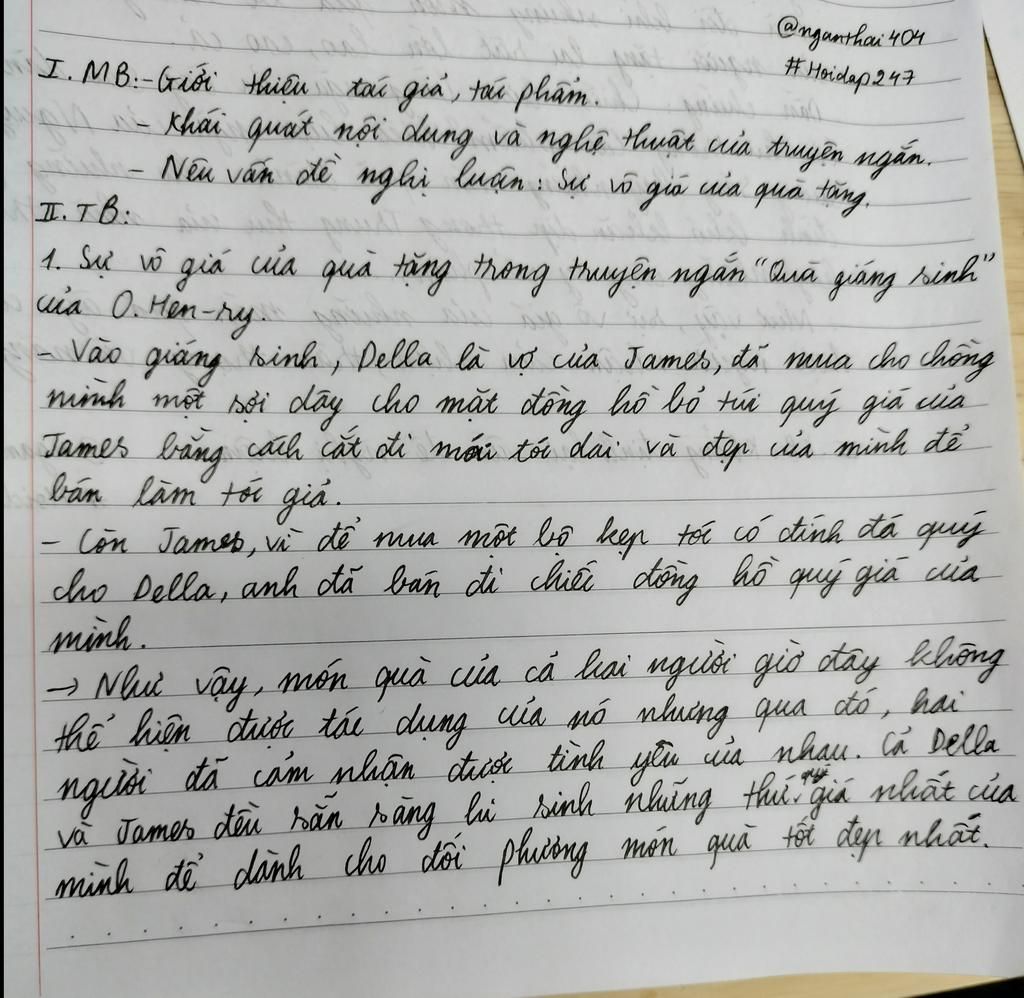 @nganthai404
#Hoidap247
I. MB: - Giới thiệu tác giả, tác phẩm.
- Khái quát nội dung và nghệ thuật của truyện ngắn.
- Nêu vấn đề nghị luận: Sự vô giá của quà tặng.
II. TB:
1. Sự vô giá của quà tặng trong truyện ngắn "Quà giáng sinh"
của O. Hen-ry.
- Vào giáng sinh, Della là vợ của James, đã mua cho chồng
mình một sợi dây cho mặt đồng hồ bỏ túi quý giá của
James bằng cách cắt đi mái tóc dài và đẹp của mình để
bán làm tóc giả.
- Còn James, vì để mua một bộ kẹp tóc có đính đá quý
cho Della, anh đã bán đi chiếc đồng hồ quý giá của
mình.
→ Như vậy, món quà của cả hai người giờ đây không
thể hiện được tác dụng của nó nhưng qua đó, hai
người đã cảm nhận được tình yêu của nhau. Cả Della
và James đều sẵn sàng hi sinh những thứ quý giá nhất của
mình để dành cho đối phương món quà tốt đẹp nhất.